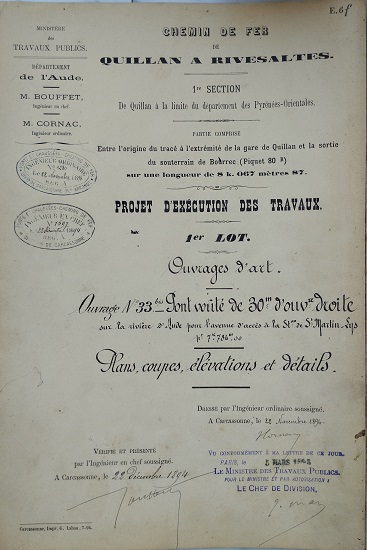 E. 6f
MINISTÈRE
des
TRAVAUX PUBLICS.
DÉPARTEMENT
de l'Aude.
M. BOUFFET,
Ingénieur en chef.
M. CORNAC,
Ingénieur ordinaire.
INGÉNIEUR ORDINAIRE
INGÉNIEUR EN CHEF
DE CARCASSONNE
CHEMIN DE FER
DE
QUILLAN A RIVESALTES.
1re SECTION
De Quillan à la limite du département des Pyrénées-Orientales.
PARTIE COMPRISE
Entre l'origine du tracé à l'extrémité de la gare de Quillan et la sortie
du souterrain de (Piquet 80
sur une longueur de 8 k. 067 mètres 87.
PROJET D'EXÉCUTION DES TRAVAUX.
1er LOT.
Ouvrages d'art.
Ouvrage N° 33 bis Pont voûté de 30m d'ouvre droite
sur la rivière d'Aude pour l'avenue d'accès à la Ston de St Martin-Lys
Plans, coupes, élévations et détails.
DRESSÉ par l'Ingénieur ordinaire soussigné.
A Carcassonne, le 22 Novembre 1894
VÉRIFIÉ ET PRÉSENTÉ
par l'Ingénieur en chef soussigné.
A Carcassonne, le 22 Décembre 1894
VU CONFORMÉMENT A MA LETTRE DE CE JOUR.
PARIS, LE MARS
LE MINISTRE DES TRAVAUX PUBLICS.
POUR LE MINISTRE ET PAR AUTORISATION :
LE CHEF DE DIVISION,
Carcassonne, Impr. G. 7-94.